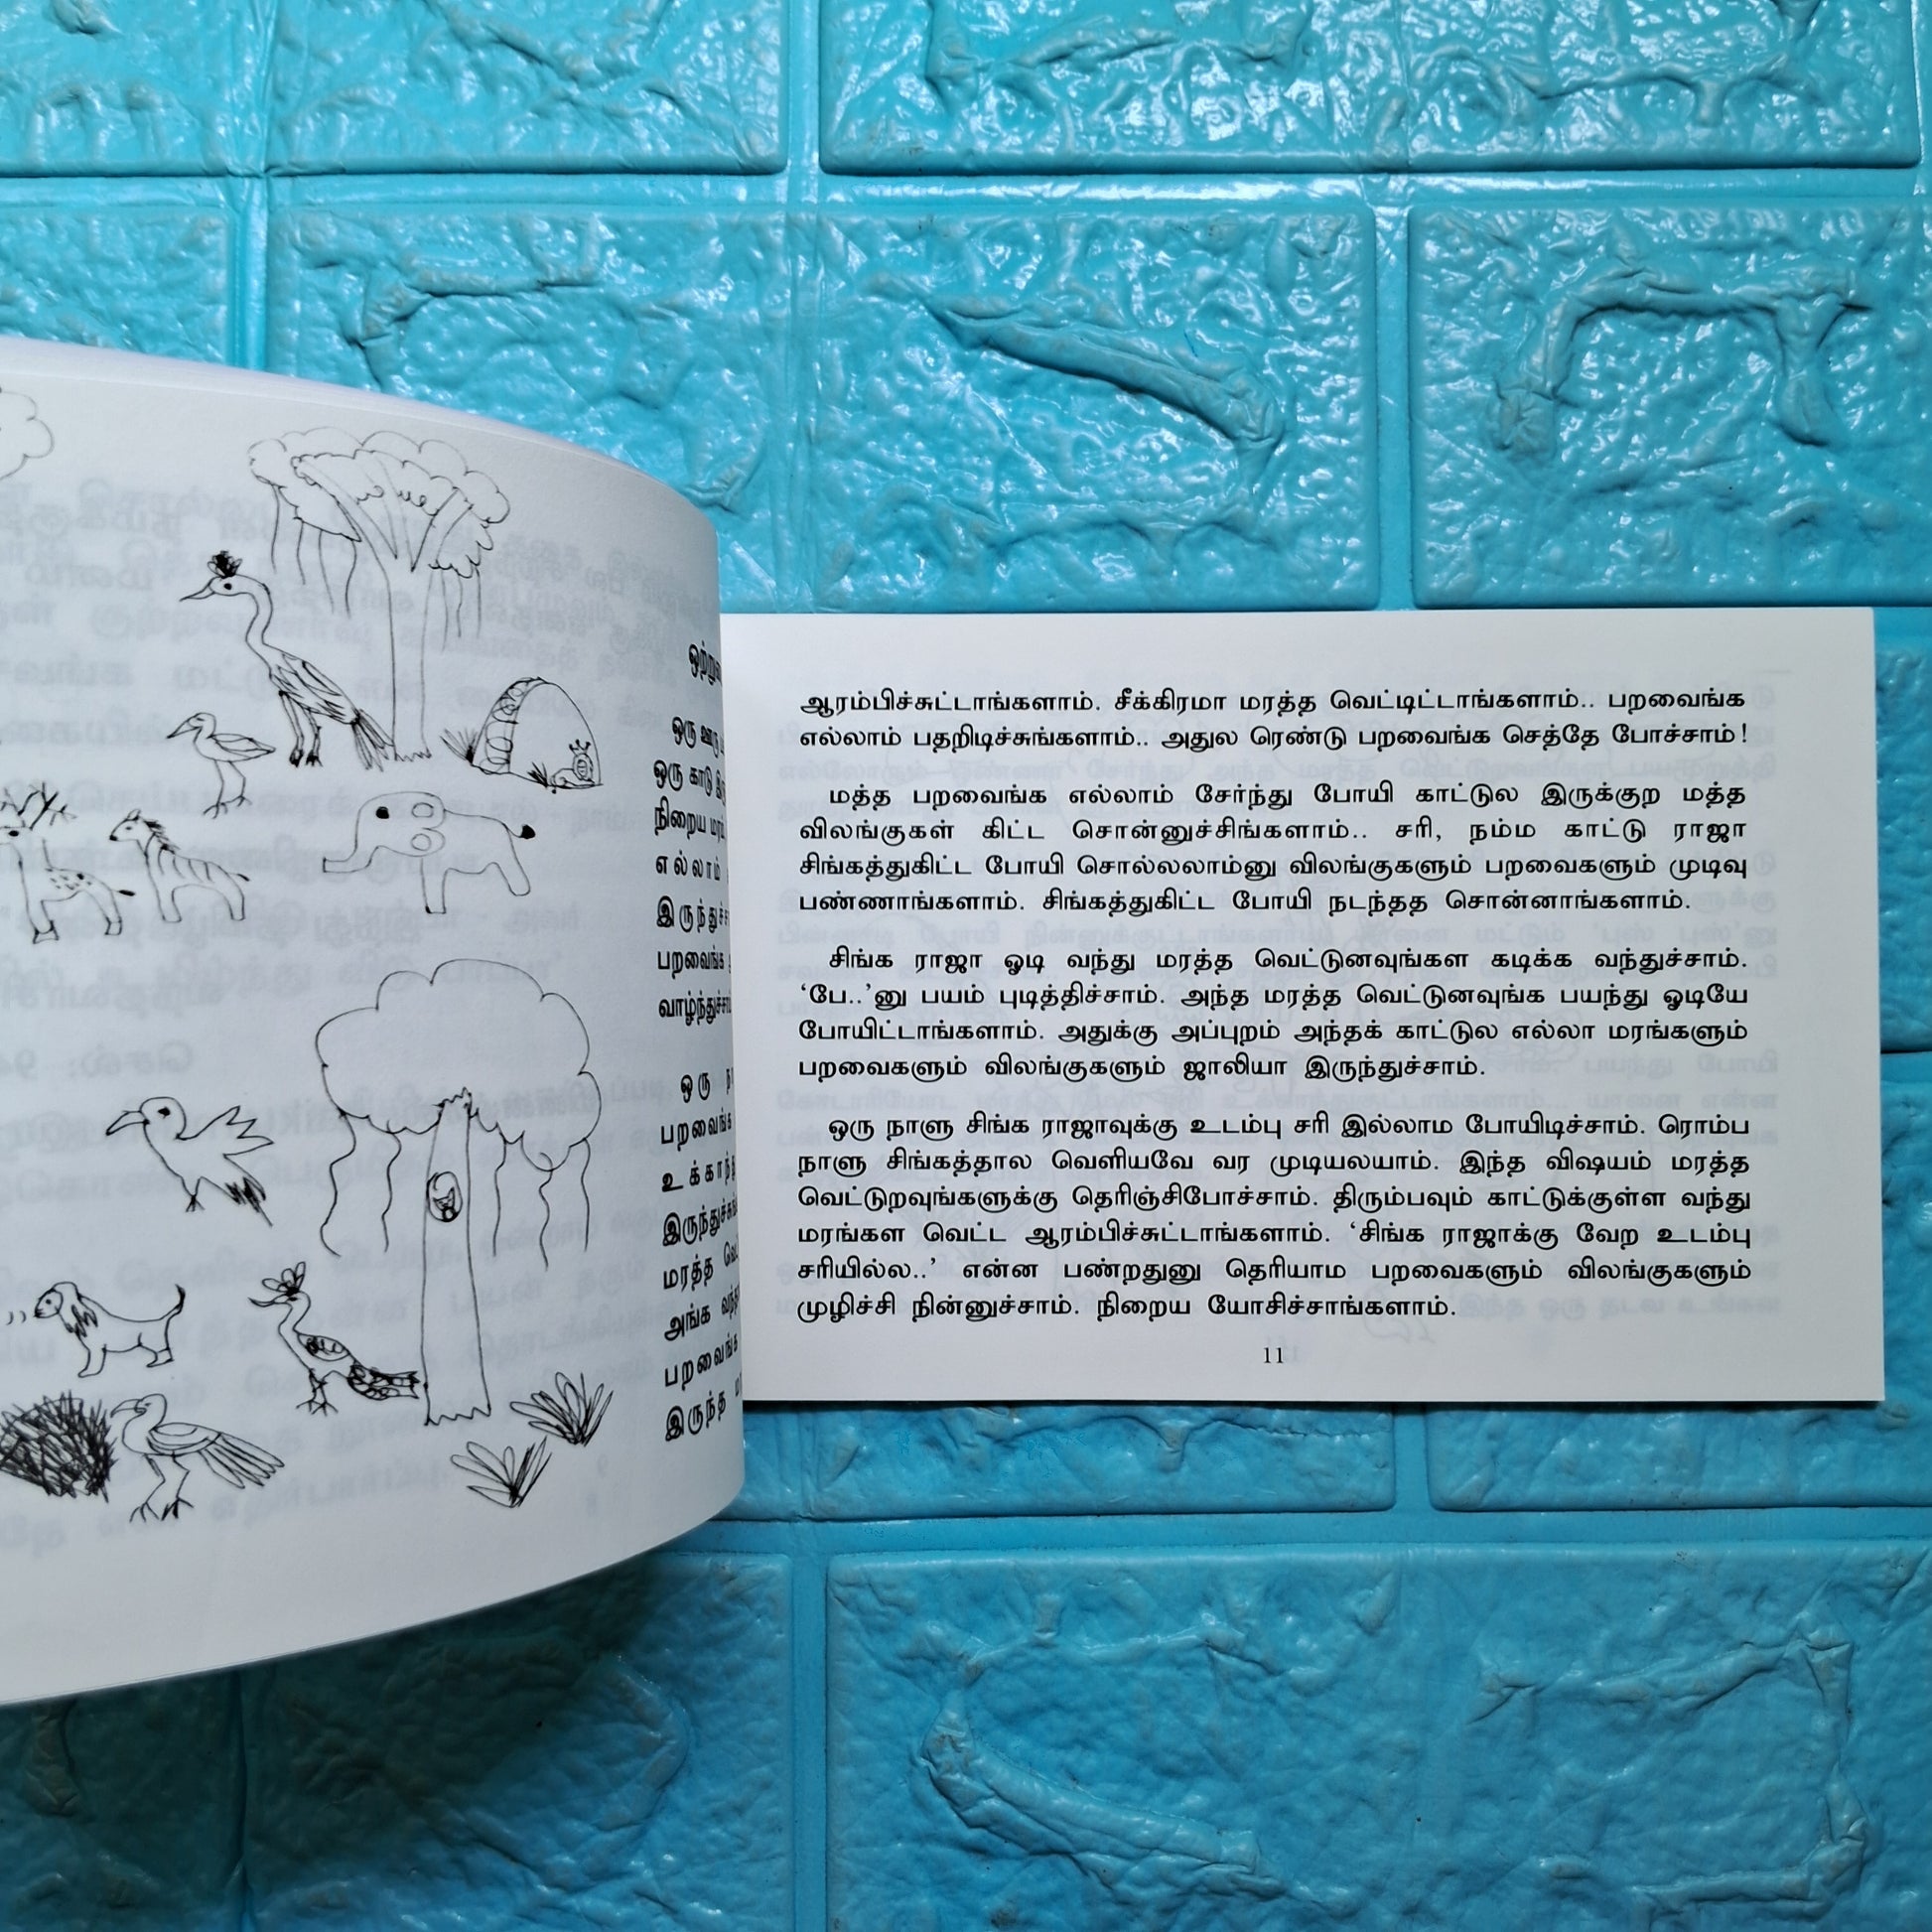 ஒரு ஊரு
ஒரு காடு
நிறைய
எல்லாம்
இருந்துச்
பறவைங்க
வாழ்ந்துச்
ஒரு
பறவைங்க
உக்காந்த
இருந்துச்
மரத்த
அங்க
பறவைங்க
இருந்த
ஆரம்பிச்சுட்டாங்களாம். சீக்கிரமா மரத்த வெட்டிட்டாங்களாம்.. பறவைங்க
எல்லாம் பதறிடிச்சுங்களாம்.. அதுல ரெண்டு பறவைங்க செத்தே போச்சாம்!
மத்த பறவைங்க எல்லாம் சேர்ந்து போயி காட்டுல இருக்குற மத்த
விலங்குகள் கிட்ட சொன்னுச்சிங்களாம்.. சரி, நம்ம காட்டு ராஜா
சிங்கத்துகிட்ட போயி சொல்லலாம்னு விலங்குகளும் பறவைகளும் முடிவு
பண்ணாங்களாம். சிங்கத்துகிட்ட போயி நடந்தத சொன்னாங்களாம்.
சிங்க ராஜா ஓடி வந்து மரத்த வெட்டுனவுங்கள கடிக்க வந்துச்சாம்.
‘பே..’னு பயம் புடித்திச்சாம். அந்த மரத்த வெட்டுனவுங்க பயந்து ஓடியே
போயிட்டாங்களாம். அதுக்கு அப்புறம் அந்தக் காட்டுல எல்லா மரங்களும்
பறவைகளும் விலங்குகளும் ஜாலியா இருந்துச்சாம்.
ஒரு நாளு சிங்க ராஜாவுக்கு உடம்பு சரி இல்லாம போயிடிச்சாம். ரொம்ப
நாளு சிங்கத்தால வெளியவே வர முடியலயாம். இந்த விஷயம் மரத்த
வெட்டுறவுங்களுக்கு தெரிஞ்சிபோச்சாம். திரும்பவும் காட்டுக்குள்ள வந்து
மரங்கள வெட்ட ஆரம்பிச்சுட்டாங்களாம். ‘சிங்க ராஜாக்கு வேற உடம்பு
சரியில்ல..’ என்ன பண்றதுனு தெரியாம பறவைகளும் விலங்குகளும்
முழிச்சி நின்னுச்சாம். நிறைய யோசிச்சாங்களாம்.
11